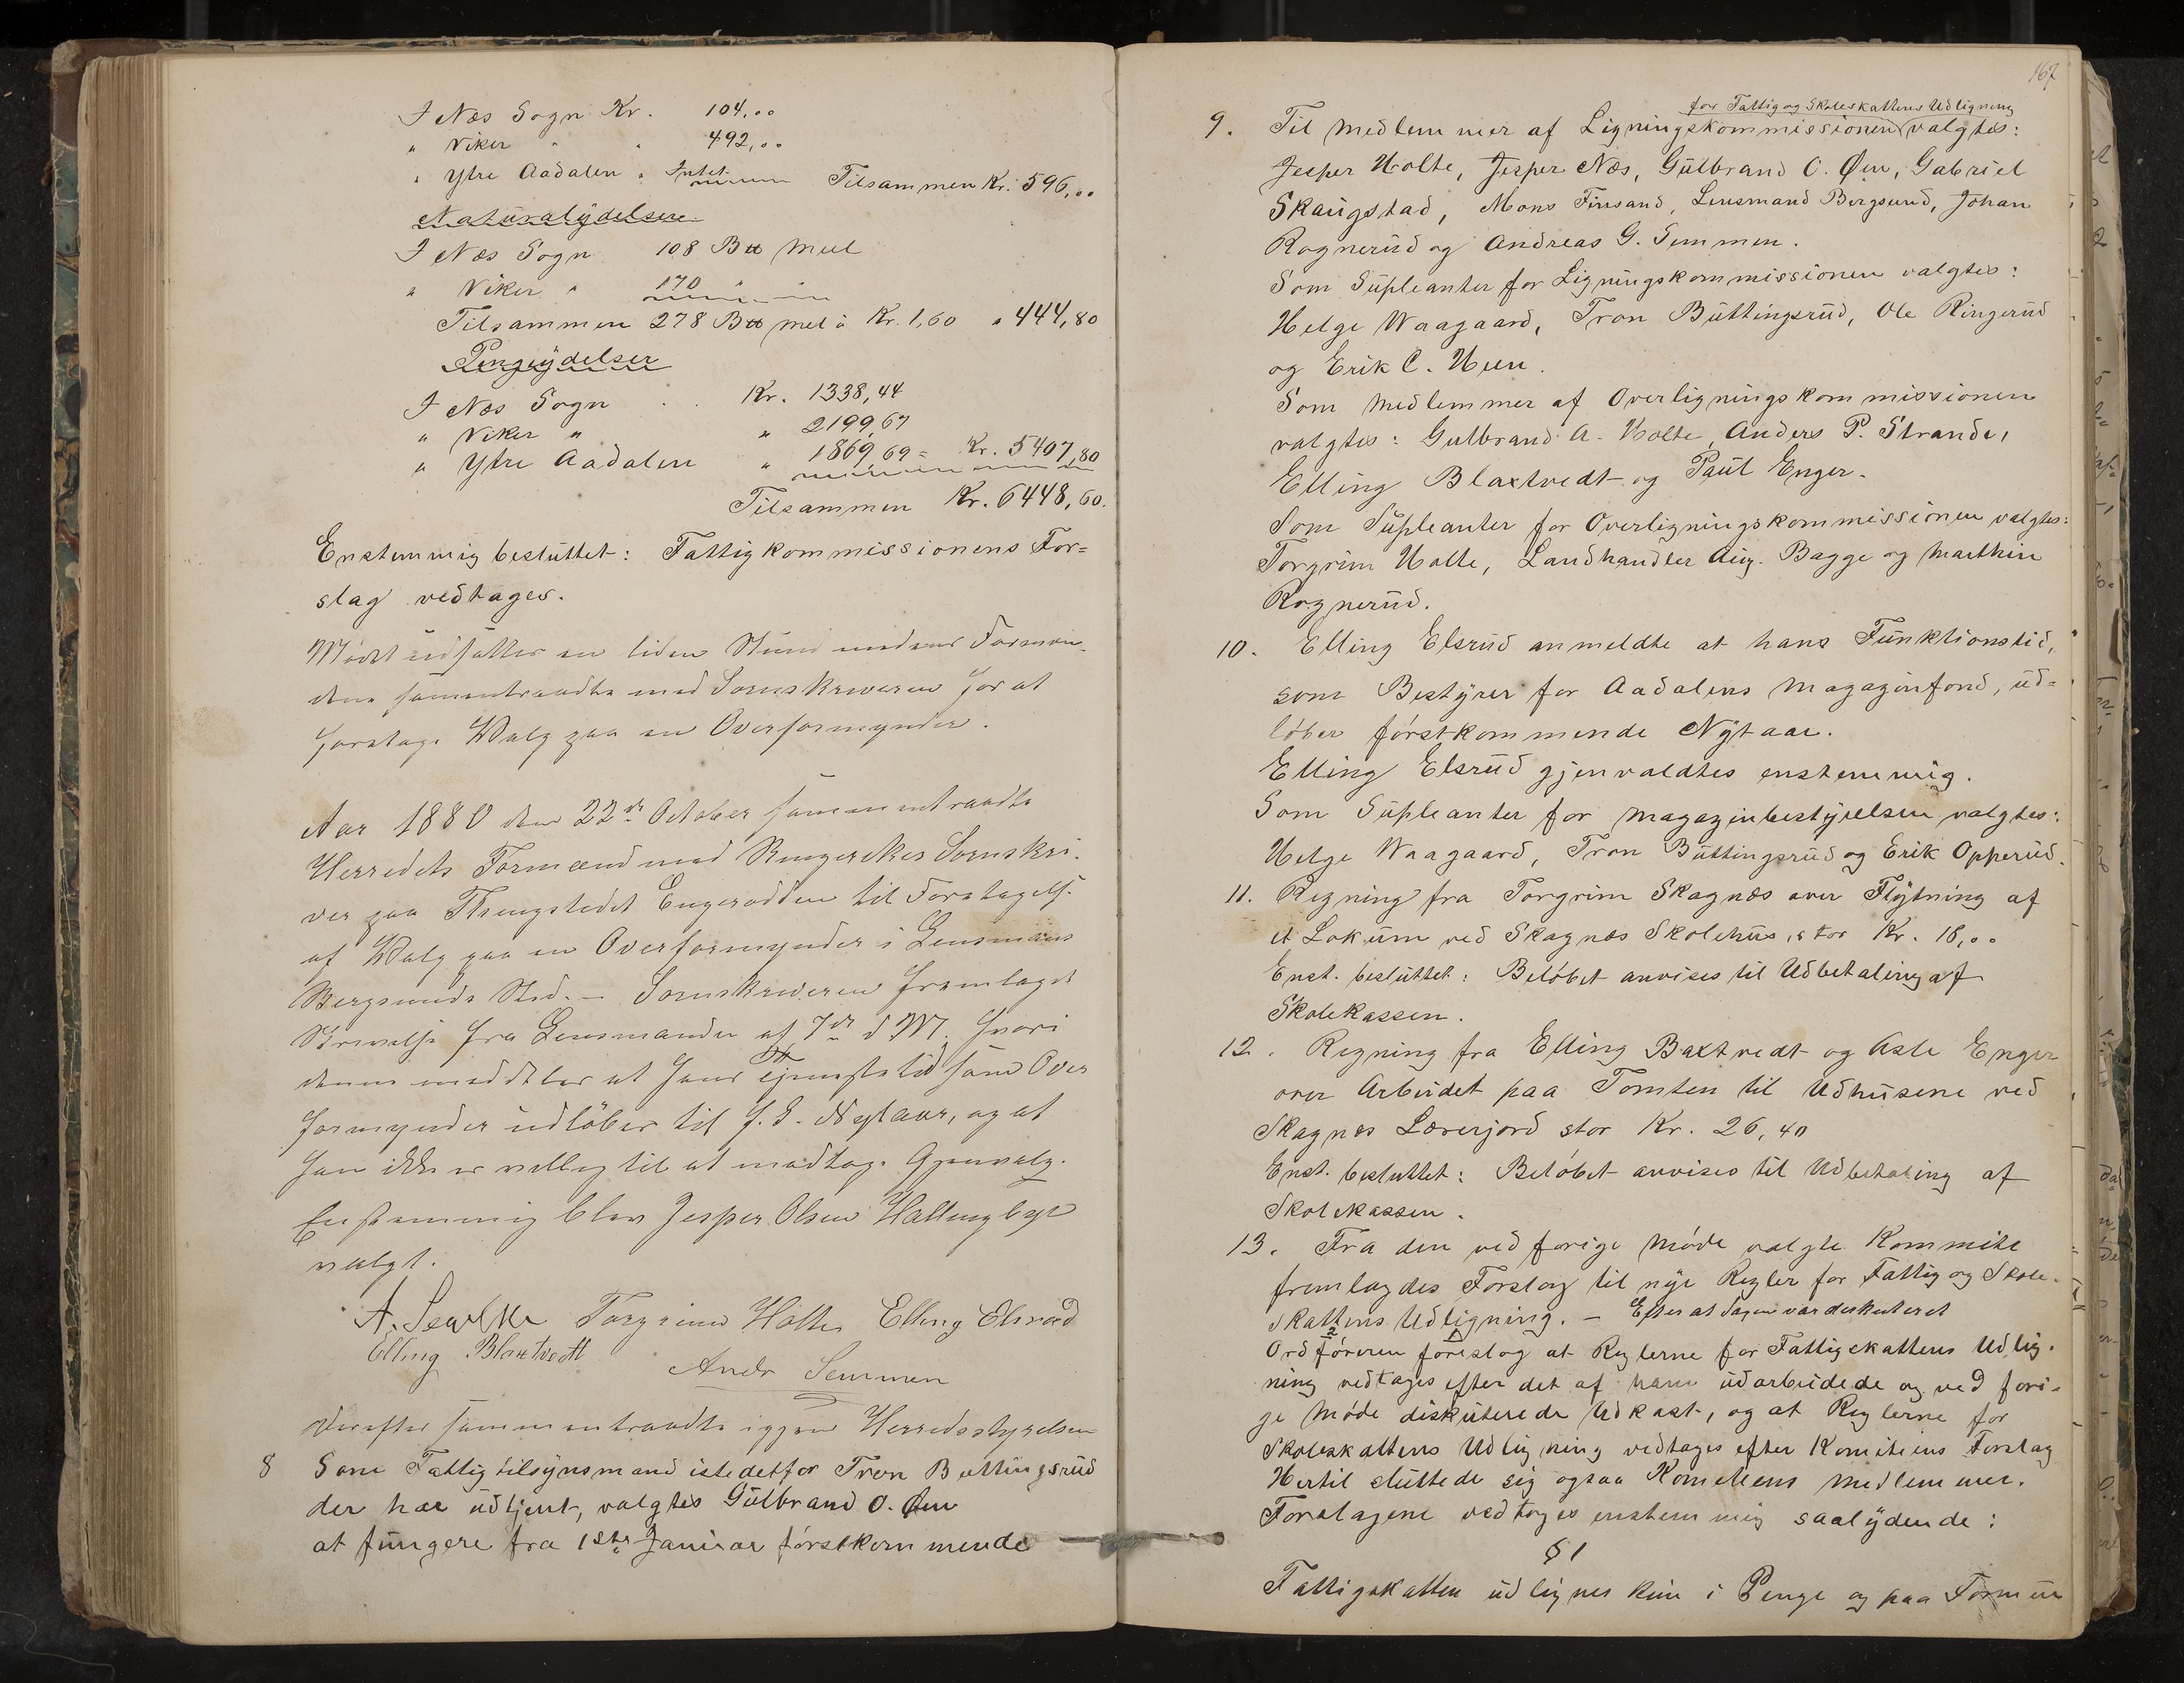 I Næs Sogn Kr. 104,00
" Viker " " 492,00
" Ytre Aadalen " Intet Tilsammen Kr. 596,00
Naturalydelser
I Næs Sogn 108 B℔ Meel
" Viker " 170 " "
Tilsammen 278 B℔ mel à Kr. 1,60 " 444,80
Pengeydelser
I Næs Sogn . . Kr. 1338,44
" Viker " " 2199,67
" Ytre Aadalen " 1869,69 = Kr. 5407,80
Tilsammen Kr. 6448,60.
Enstemmig besluttet: Fattigkommissionens For=
slag vedtages.
Mødet udsattes en liden Stund medens Formæn-
dene sammentraadte med Sorenskriveren for at
foretage Valg paa en Overformynder.
Aar 1880 den 22de October sammentraadte
Herredets Formænd med Ringerikes Sorenskri-
ver paa Thingstedet Engerodden til Foretagelse
af Valg paa en Overformynder i Lensmand
Bergsunds Sted. – Sorenskriveren fremlagde
Skrivelse fra Lensmanden af 7de d. M. hvori
denne meddeler at hans Tjenestetid som Over
formynder udløber til f. E. Nytaar, og at
han ikke er villig til at modtage Gjenvalg.
Enstemmig blev Jesper Olsen Hallingby
valgt.
Torgrim Holte Elling Elsrud
Elling Blaxtvedt
Andr Semmen
Derefter sammentraadte igjen Herredsstyrelsen
8 Som Fattigtilsynsmand istedetfor Tron Buttingsrud
der har udtjent, valgtes Gulbrand O. Øen
at fungere fra 1ste Januar førstkommende
167
for Fattig og Skoleskattens Udligning
9. Til Medlemmer af Ligningskommissionen valgtes:
Jesper Holte, Jesper Næs, Gulbrand O. Øen, Gabriel
Skaugstad, Mons Finsand, Lensmand Bergsund, Johan
Rognerud og Andreas G. Semmen.
Som Supleanter for Ligningskommissionen valgtes:
Helge Waagaard, Tron Buttingsrud, Ole Ringerud
og Erik C. Heen.
Som Medlemmer af Overligningskommissionen
valgtes: Gulbrand A. Holte, Anders P. Strande,
Elling Blaxtvedt og Paul Enger.
Som Supleanter for Overligningskommissionen valgtes:
Torgrim Holte, Landhandler Aug. Bagge og Marthin
Rognerud.
10. Elling Elsrud anmeldte at hans Funktionstid,
som Bestyrer for Aadalens Magazinfond, ud=
løber førstkommende Nytaar.
Elling Elsrud gjenvaldtes enstemmig.
Som Supleanter for Magazinbestyrelsen valgtes:
Helge Waagaard, Tron Buttingsrud og Erik Opperud.
11. Regning fra Torgrim Skagnæs over Flytning af
et Lokum ved Skagnæs Skolehus, stor Kr. 18,00
Enst. besluttet: Beløbet anvises til Udbetaling af
Skolekassen.
12. Regning fra Elling Baxtvedt og Asle Enger
over Arbeidet paa Tomten til Udhusene ved
Skagnæs Lærerjord stor Kr. 26,40
Enst. besluttet: Beløbet anvises til Udbetaling af
Skolekassen.
13. Fra den ved forige Møde valgte Kommite
fremlagdes Forslag til nye Regler for Fattig og Skole-
skattens Udligning. – Efter at Sagen var deskuteret
2 1
Ordføreren foreslog at Reglerne for Fattigskattens Udlig-
ning vedtages efter det af ham udarbeidede og ved fori-
ge Møde diskuterede Udkast, og at Reglerne for
Skoleskattens Udligning vedtages efter Komiteens Forslag
Hertil sluttede sig ogsaa Komiteens Medlemmer.
Forslagene vedtoges enstemmig saalydende:
§ 1
Fattigskatten udlignes kun i Penge og paa Formue